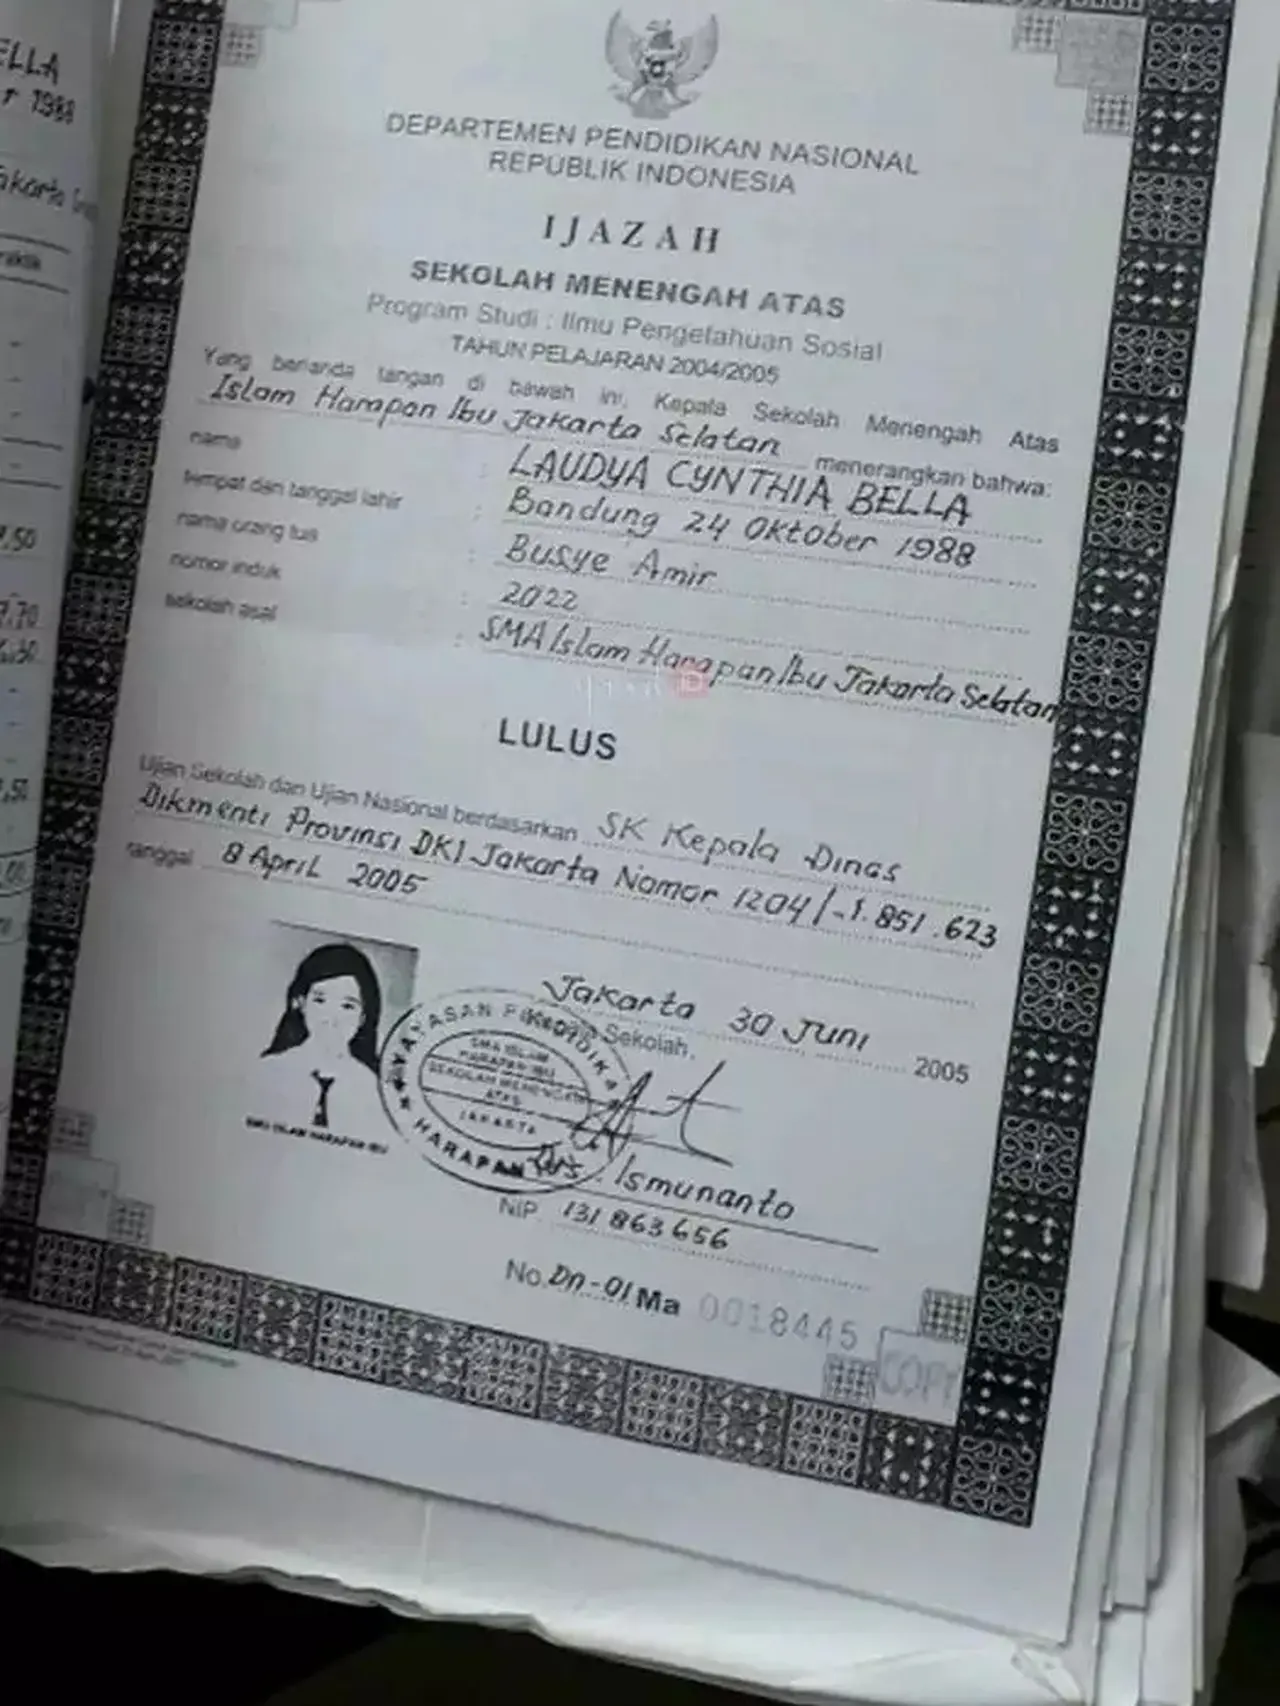 ELLA
r 1988
akarta
DEPARTEMEN PENDIDIKAN NASIONAL
REPUBLIK INDONESIA
IJAZAH
SEKOLAH MENENGAH ATAS
Program Studi : Ilmu Pengetahuan Sosial
TAHUN PELAJARAN 2004/2005
Yang bertanda tangan di bawah ini, Kepala Sekolah Menengah Atas
Islam Harapan Ibu Jakarta Selatan menerangkan bahwa:
nama : LAUDYA CYNTHIA BELLA
tempat dan tanggal lahir : Bandung 24 Oktober 1988
nama orang tua : Busye Amir
nomor induk : 2022
sekolah asal : SMA Islam Harapan Ibu Jakarta Selatan
LULUS
Ujian Sekolah dan Ujian Nasional berdasarkan SK Kepala Dinas
Dikmenti Provinsi DKI Jakarta Nomor 1204/-1.851.623
tanggal 8 April 2005
Jakarta 30 Juni 2005
Kepala Sekolah,
SMA ISLAM
HARAPAN IBU
SEKOLAH MENENGAH
ATAS
JAKARTA
HARAPAN
SMU ISLAM HARAPAN IBU
Drs. Ismunanto
NIP 131 863 656
No. Dn-01 Ma 0018445
COPY